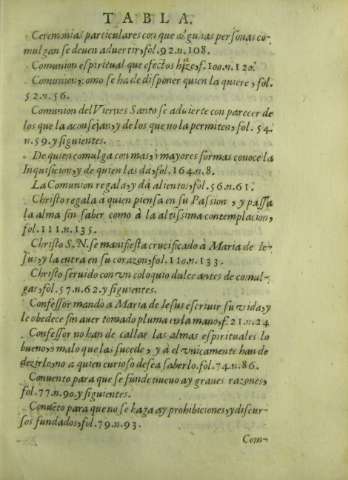 TABLA.
Ceremonias particulares con que algunas personas co-
mulgan se deuen aduertir, fol. 92. n. 108.
Comunion espiritual que efectos hize, f. 100. n. 120.
Comunion, como se ha de disponer quien la quiere, fol.
52. n. 56.
Comunion del Viernes Santo se aduierte con parecer de
los que la aconsejan, y de los que no la permiten, fol. 54.
n. 59. y siguientes.
De quien comulga con mas, i mayores formas conoce la
Inquisicion, y de quien las dà, fol. 164. n. 8.
La Comunion regala, y dà alientos, fol. 56. n 61.
Christo regala à quien piensa en su Passion, y passa
la alma sin saber como à la altissima contemplacion,
fol. 111. n. 135.
Christo S.N. se manifiesta crucificado à Maria de Ie-
sus, y la entra en su coraçon, fol. 110. n. 133.
Christo seruido con vn coloquio dulce antes de comul-
gar, fol. 57. n. 62. y siguientes.
Confessor mandò a Maria de Iesus escriuir su vida, y
le obedece sin auer tomado pluma en la mano, f. 21. n. 24
Confessor no han de callar las almas espirituales lo
bueno, ò malo que las sucede, y à el vnicamente han de
dezirlo, no a quien curioso desea saberlo. fol. 74. n. 86.
Conuento para que se funde nueuo ay graues razones,
fol. 77. n. 90. y siguientes.
Conuẽto para que no se haga ay prohibiciones, y discur-
sos fundados, fol. 79. n. 93.
Com-